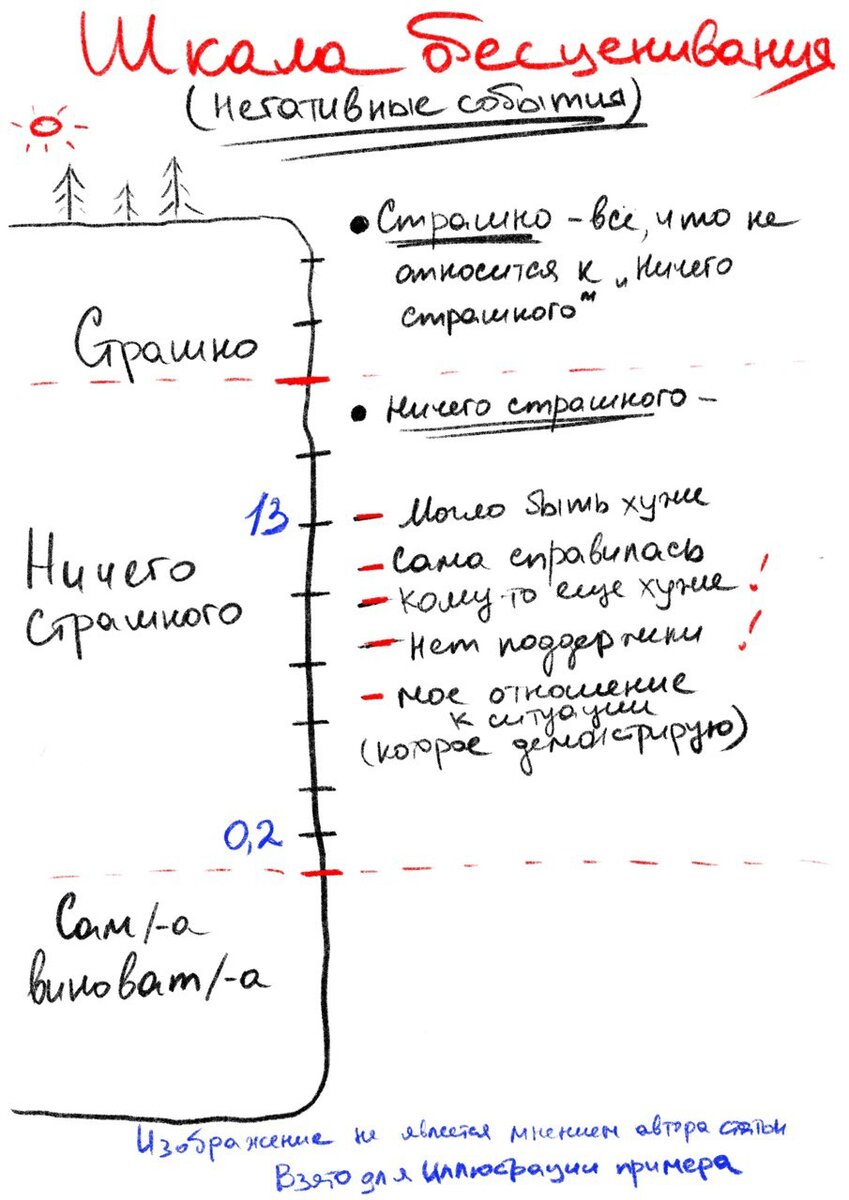 Шкала бесценивания
(негативные события)
• Страшно – всё, что не
относится к „Ничего
страшного"
Страшно
• Ничего страшного –
13
– Могло быть хуже
Ничего
страшного
– Сама справилась
– кому-то еще хуже !
– Нет поддержки !
– мое отношение
к ситуации
(которое демонстрирую)
0,2
Сам/-а
виноват/-а
Изображение не является мнением автора статьи
Взято для иллюстрации примера